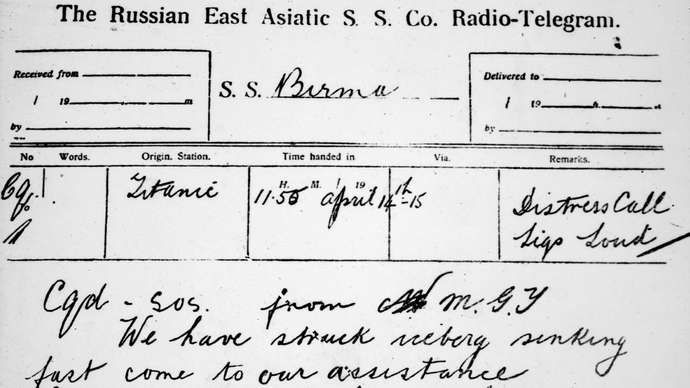 The Russian East Asiatic S. S. Co. Radio-Telegram.
Received from
1 19 m
by
S. S. Birma
Delivered to
1 19
by
No Words. Origin. Station. Time handed in Via. Remarks.
H. M. 1 19
Titanic 11.50 April 14th-15 Distress Call
1 Sigs Loud
Cqd - SOS. from M.G.Y
We have struck iceberg sinking
fast come to our assistance